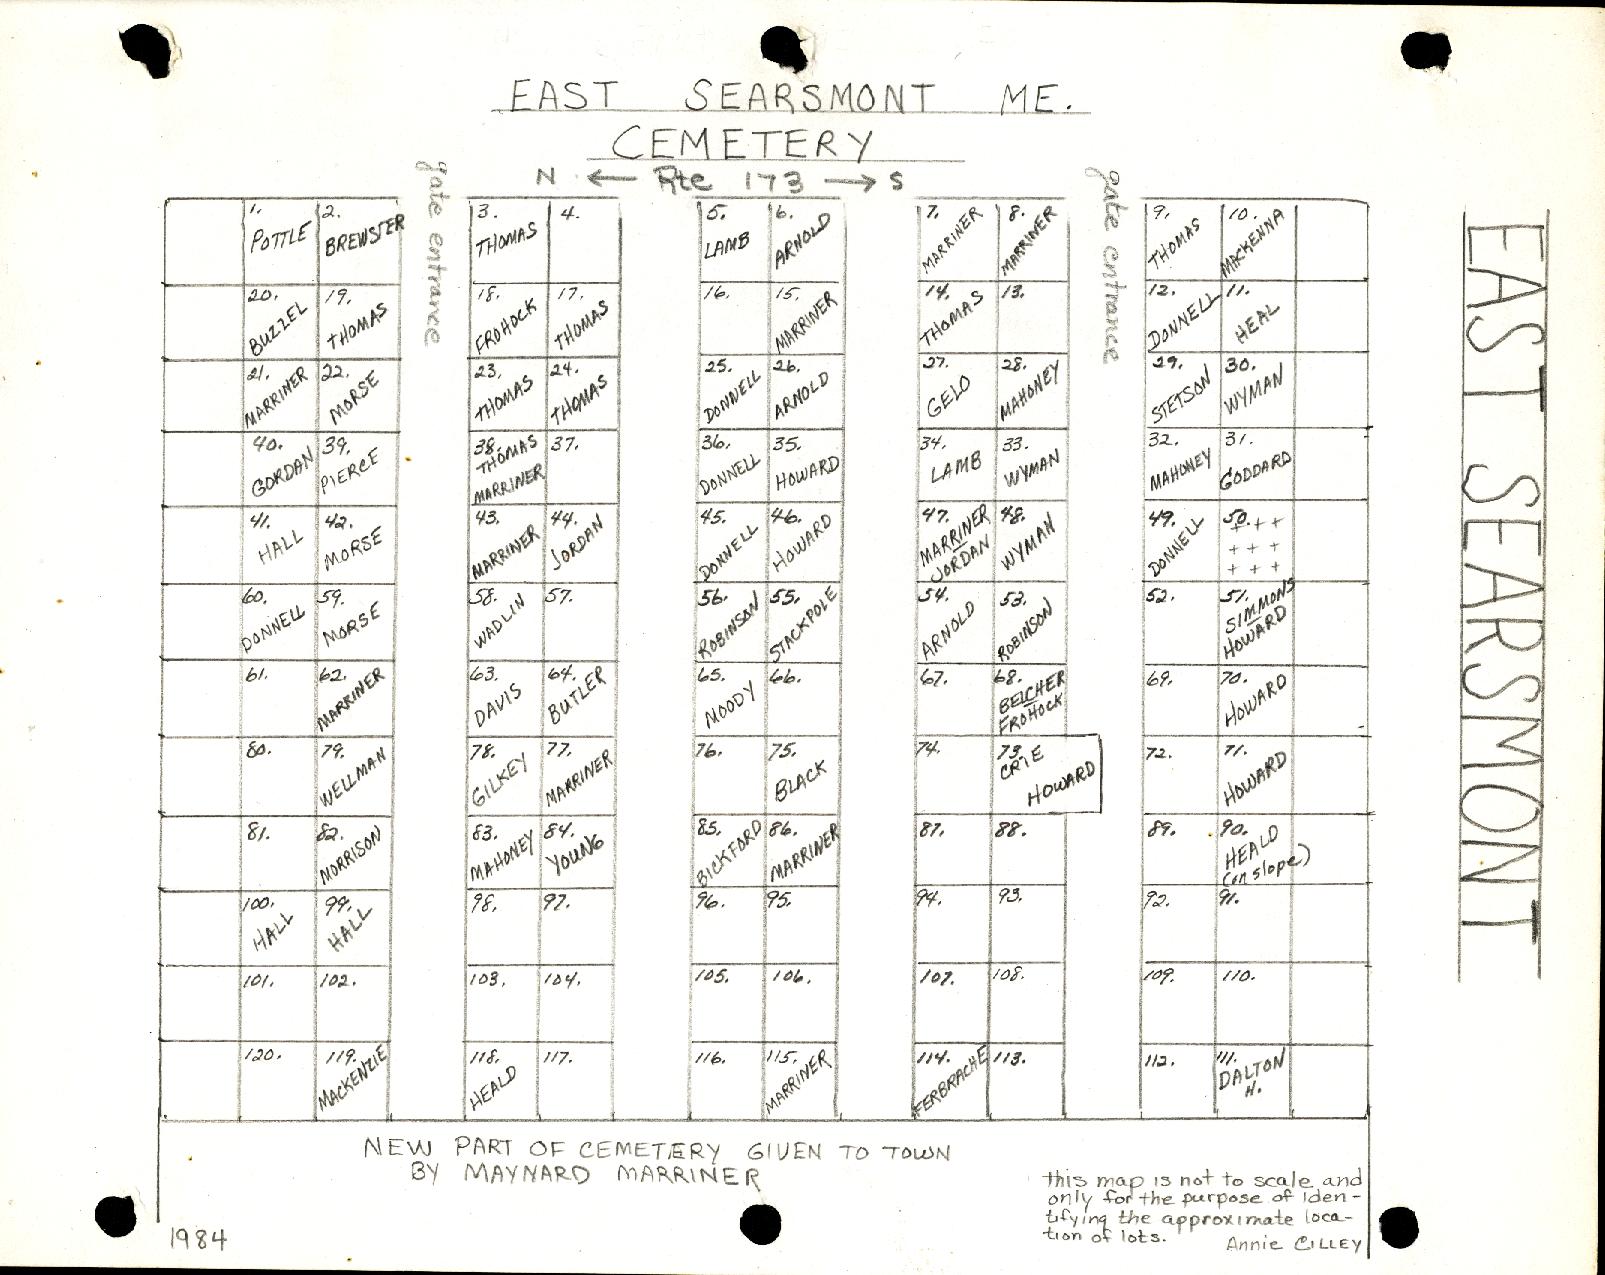 EAST SEARSMONT ME.
CEMETERY
N ← Rte 173 → S
gate entrance
gate entrance
EAST SEARSMONT
1. POTTLE
2. BREWSTER
3. THOMAS
4.
5. LAMB
6. ARNOLD
7. MARRINER
8. MARRINER
9. THOMAS
10. MACKENNA
20. BUZZEL
19. THOMAS
18. FROHOCK
17. THOMAS
16.
15. MARRINER
14. THOMAS
13.
12. DONNELL
11. HEAL
21. MARRINER
22. MORSE
23. THOMAS
24. THOMAS
25. DONNELL
26. ARNOLD
27. GELO
28. MAHONEY
29. STETSON
30. WYMAN
40. GORDAN
39. PIERCE
38. THOMAS
MARRINER
37.
36. DONNELL
35. HOWARD
34. LAMB
33. WYMAN
32. MAHONEY
31. GODDARD
41. HALL
42. MORSE
43. MARRINER
44. JORDAN
45. DONNELL
46. HOWARD
47. MARRINER
JORDAN
48. WYMAN
49. DONNELL
50. + + +
+ + +
+ + +
60. DONNELL
59. MORSE
58. WADLIN
57.
56. ROBINSON
55. STACKPOLE
54. ARNOLD
53. ROBINSON
52.
51. SIMMONS
HOWARD
61.
62. MARRINER
63. DAVIS
64. BUTLER
65. MOODY
66.
67.
68. BELCHER
FROHOCK
69.
70. HOWARD
80.
79. WELLMAN
78. GILKEY
77. MARRINER
76.
75. BLACK
74.
73. CRIE
HOWARD
72.
71. HOWARD
81.
82. MORRISON
83. MAHONEY
84. YOUNG
85. BICKFORD
86. MARRINER
87.
88.
89.
90. HEALD
(on slope)
100. HALL
99. HALL
98.
97.
96.
95.
94.
93.
92.
91.
101.
102.
103.
104.
105.
106.
107.
108.
109.
110.
120.
119. MACKENZIE
118. HEALD
117.
116.
115. MARRINER
114. FERBRACHE
113.
112.
111. DALTON
H.
NEW PART OF CEMETERY GIVEN TO TOWN
BY MAYNARD MARRINER
this map is not to scale and
only for the purpose of iden-
tifying the approximate loca-
tion of lots.
Annie CILLEY
1984